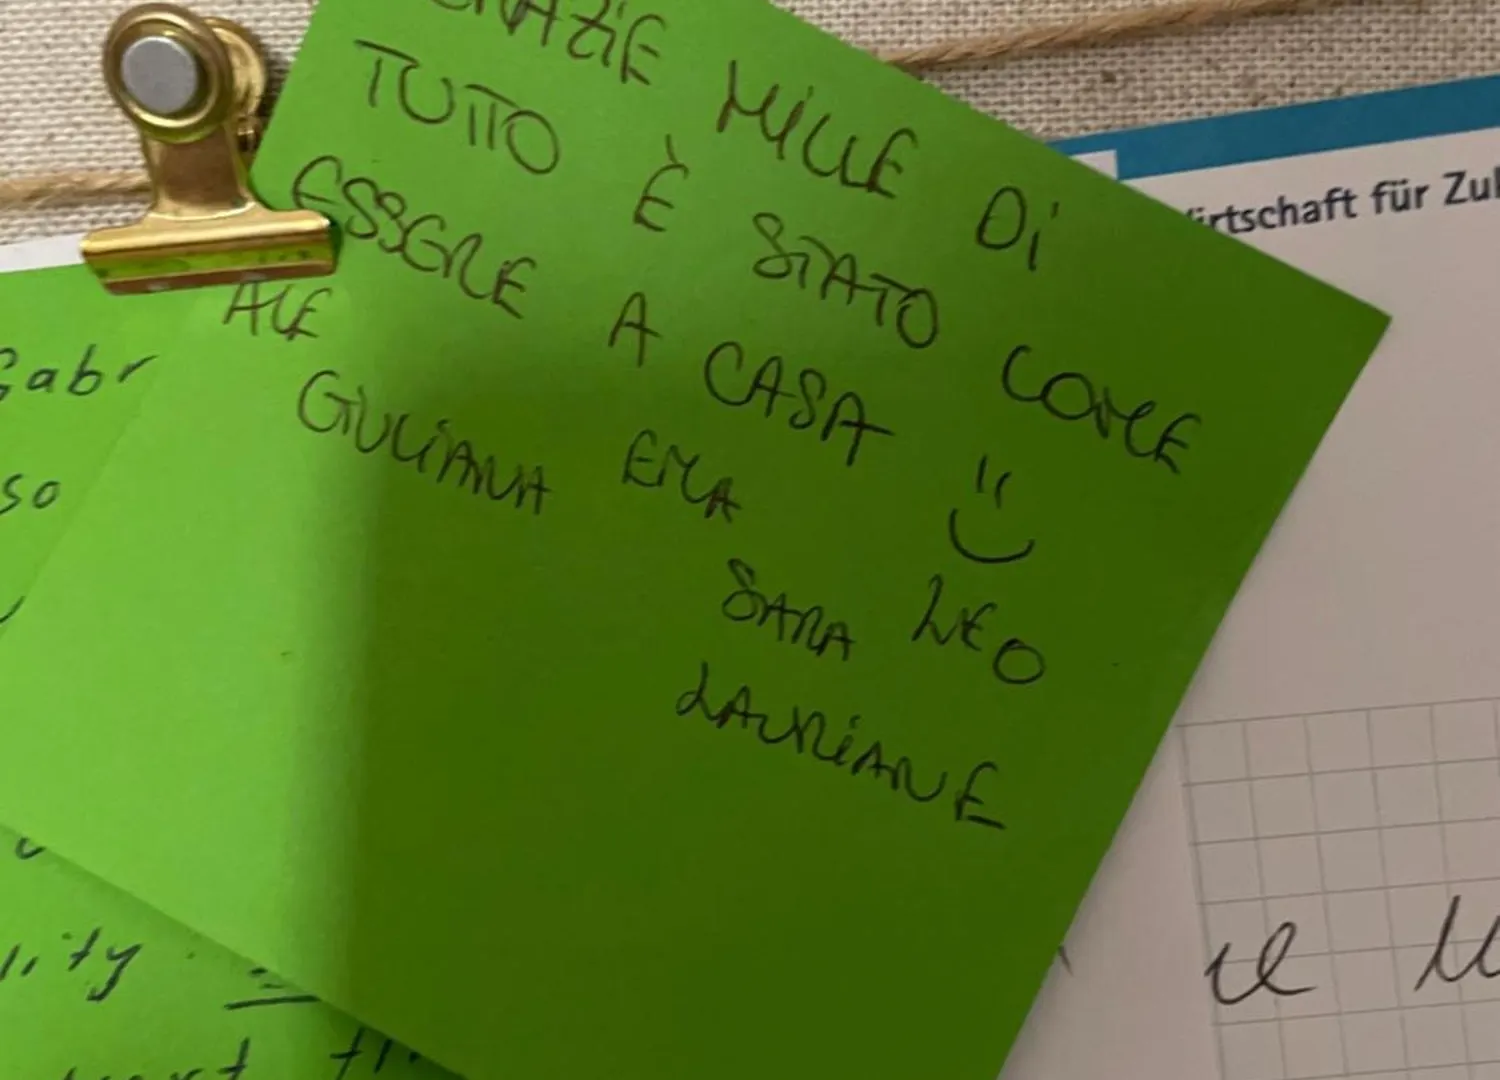 GRAZIE MILLE DI
TUTTO È STATO COME
ESSERE A CASA :)
ALE
GIULIANA EMA
SARA LEO
LAURIANE
irtschaft für Zu
Gabr
so
lity